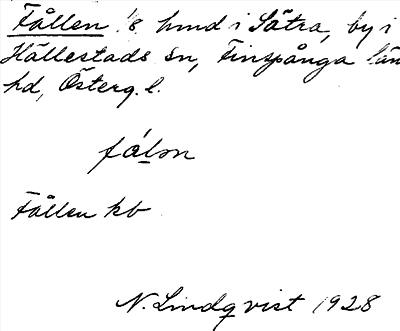 Fållen 1/8 hmd i Sätra, by i
Hällestads sn, Finspånga län
hd, Österg. l.
fålən
Fållen kb
N. Lindqvist 1928